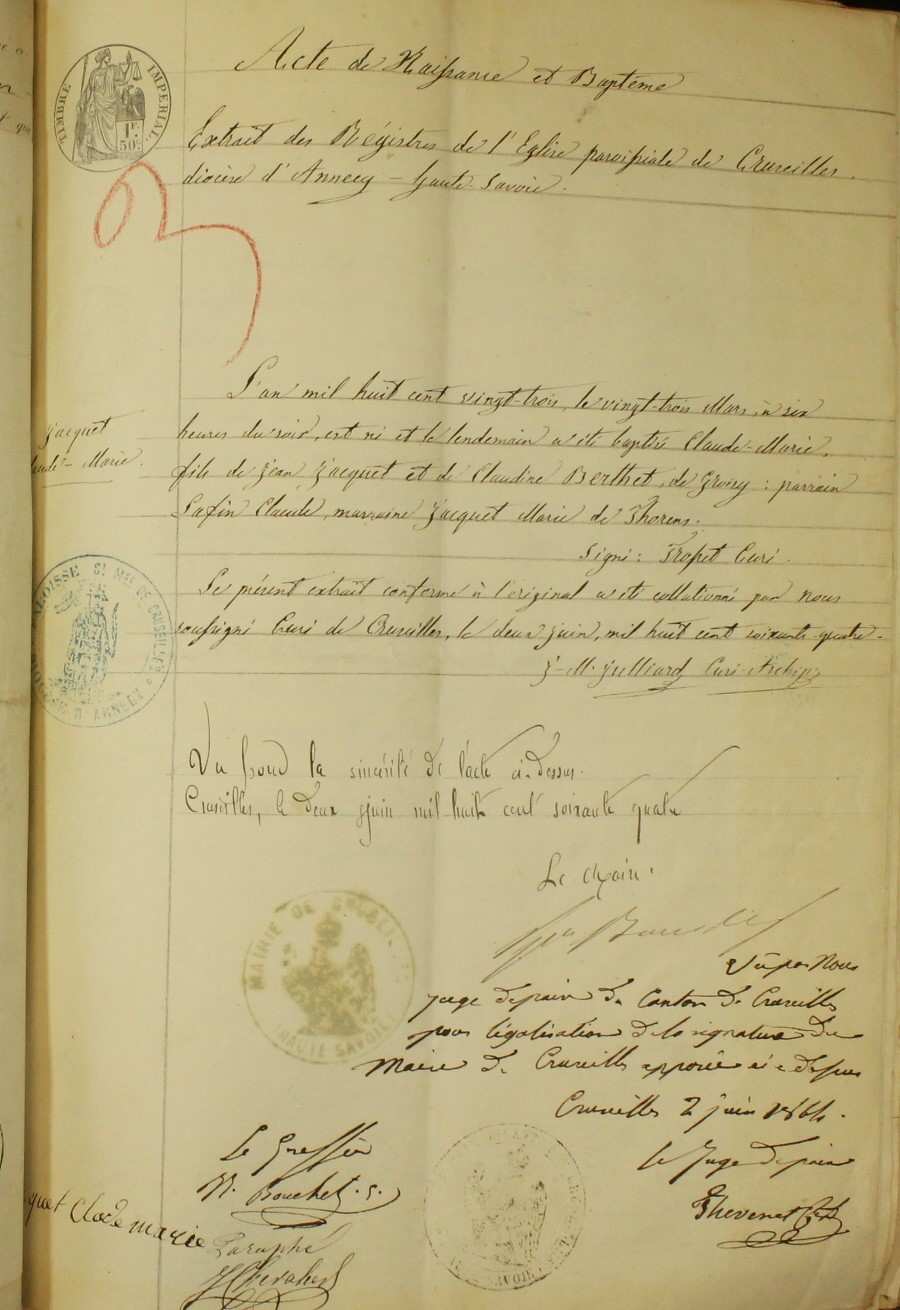 TIMBRE IMPERIAL.
1F.
50c
Acte de Naissance et Baptême
Extrait des Régistres de l'Eglise paroissiale de Cruseilles.
diocèse d'Annecy - haute Savoie.
L'an mil huit cent vingt-trois, le vingt-trois Mars, à six
Jacquet
heures du soir, est né et le lendemain a été baptisé Claude-Marie,
Claude-Marie.
fils de Jean Jacquet et de Claudine Berthet, de : parrain
Claude, marraine Jacquet Marie de Thorens.
Signé: Curé.
Le présent extrait conforme à l'original a été collationné par nous
soussigné Curé de Cruseilles, le deux juin, mil huit cent soixante-quatre-
J-M. Julliard Curé-Archip.
PAROISSE DE CRUSEILLES
DIOCESE D'ANNECY
Vu pour la sincérité de l'acte ci-dessus.
Cruseilles, le deux juin mil huit cent soixante quatre
Le Maire.
MAIRIE DE CRUSEILLES
HAUTE SAVOIE
Vu par Nous
juge de paix du Canton de Cruseilles
pour légalisation de la signature du
Maire de Cruseilles apposée ci-dessus
Cruseilles 2 juin 1864.
Le Greffier
le Juge de paix
N. Bouchet. s.
Thevenet
quet Clode marie
Paraphé